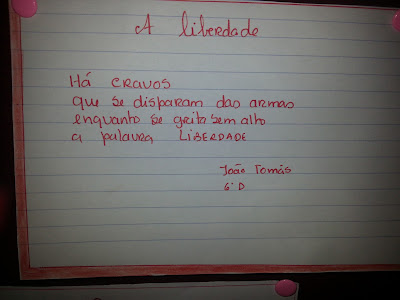 A liberdade
Há cravos
que se disparam das armas
enquanto se grita bem alto
a palavra LIBERDADE
João Tomás
6º D